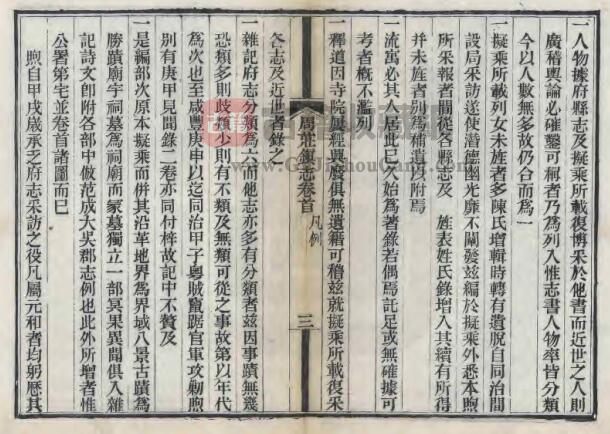 一人物據府縣志及擬乘所載復博采於他書而近世之人則
廣稽輿論必確鑿可稱者乃為列入惟志書人物率皆分類
今以人數無多故仍合而為一
一擬乘所載列女未旌者多陳氏增輯時轉有遺脫自同治間
設局采訪遂使潛德幽光靡不闡發茲編於擬乘外悉本煦
所采報者間從各縣志及 姓表姓氏錄增入其續有所得
并未旌者別為補遺以附焉
一流寓必其人居此已久始為著錄若偶焉託足或無確據可
考者概不濫列
一釋道因寺院誠經典廢俱無遺籍可稽茲就擬乘所載復采
周莊鎮志卷首 凡例
三
各志及近世者錄之
一雜記府志分類為六而他志亦多有分類者茲因事蹟無幾
恐類多則歧類少則有不類及無類可從之事故第以年代
為次也至咸豐庚申以迄同治甲子粵賊竄踞官軍攻勦煦
別有庚甲見聞錄二卷亦同付梓故記中不贅及
一是編部次原本擬乘而併其沿革地界為界域八景古蹟為
勝蹟廟宇祠墓為祠廟而冢墓獨立一部冥果異聞俱入雜
記詩文卽附各部中倣范成大吳郡志例也此外所增者惟
公署第宅並卷首諸圖而巳
煦自甲戌歲承乏府志采訪之役凡屬元和者均躬歷其